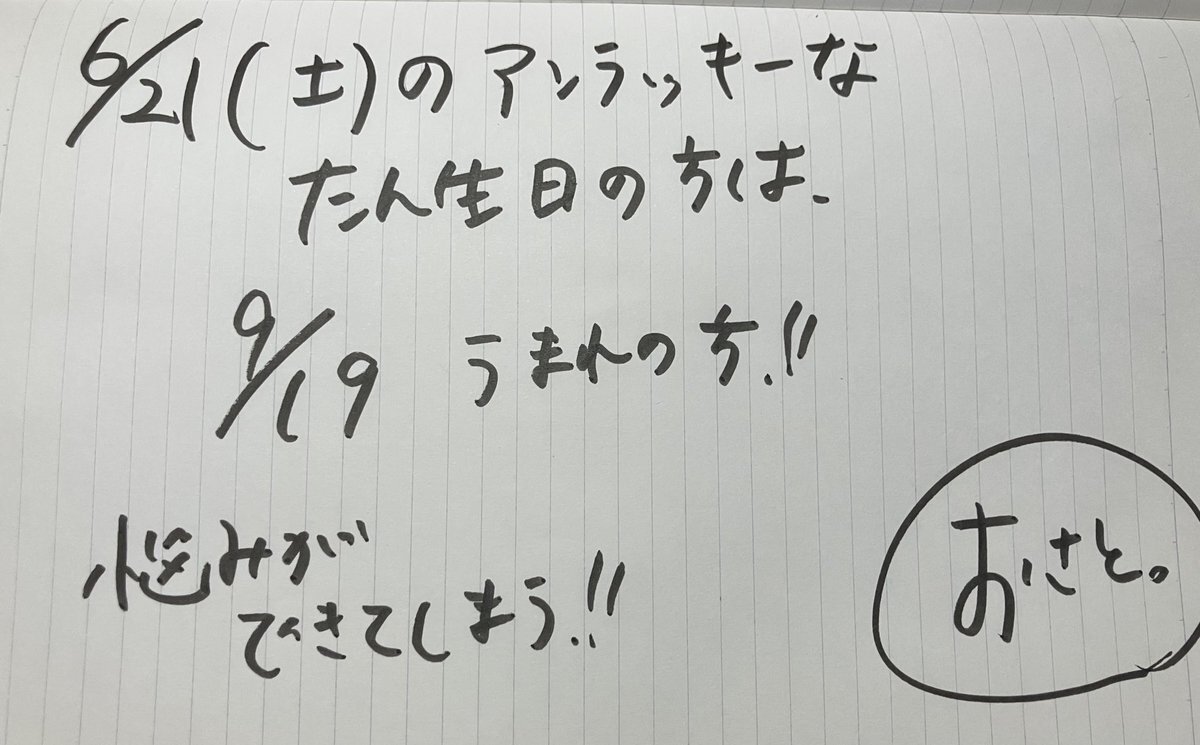 6/21(土)のアンラッキーな
たん生日の方は、
9/19 うまれの方!!
悩みが
できてしまう!!
おさと。